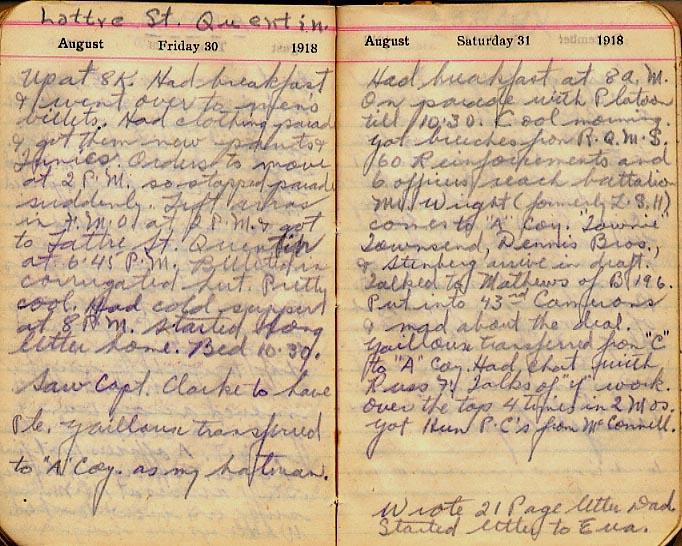 Lattre St. Quentin.
August Friday 30 1918
Up at 8 K. Had breakfast
& went over to men's
billets. Had clothing parade
& got them new pants &
Tunics. Orders to move
at 2 P.M. so stopped parade
suddenly. Left Arras
in at 2 P.M. & got
to Lattre St. Quentin
at 6:45 P.M. Billeted in
corrugated hut. Pretty
cool. Had cold supper
at 8 P.M. Started long
letter home. Bed 10.30.
Saw Capt. Clarke to have
Pte. Gailloux transferred
to "A" Coy. as my batman.
August Saturday 31 1918
Had breakfast at 8 a.M.
On parade with Platoon
till 10.30. Cool morning.
Got breeches from R.Q.M.S.
60 Reinforcements and
6 officers reach battalion
Mr. Wright (formerly L.8.H)
comes to "A" Coy. "Townie"
Townsend, Dennis Bros.,
& Stenberg arrive in draft.
Talked to Mathews of B 196.
Put into 43rd Camerons
& mad about the deal.
Gailloux transferred from "C"
to "A" Coy. Had chat with
Russ Talks of "Y" work.
Over the top 4 times in 2 Mos.
Got Hun P.C's from McConnell.
Wrote 21 Page letter Dad.
Started letter to Eva.